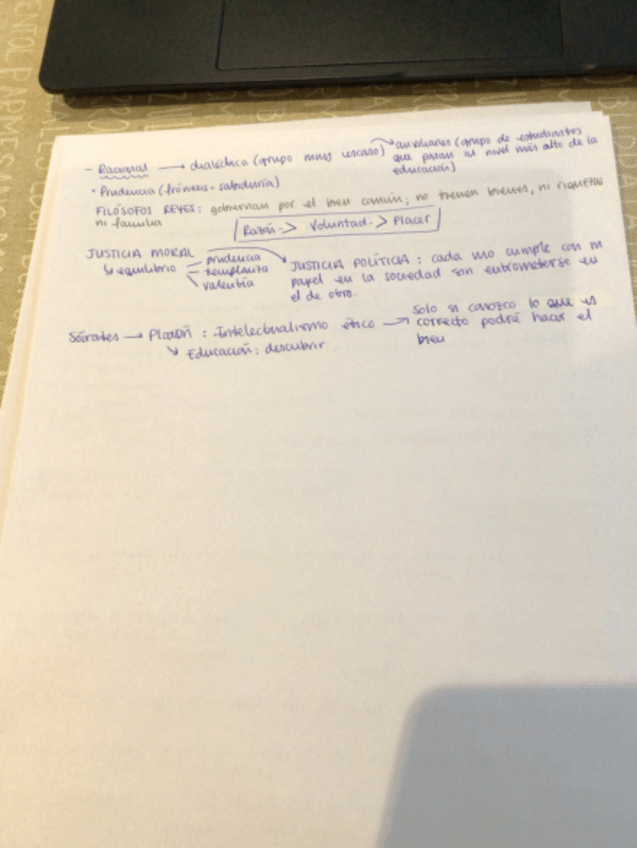 - Racional → dialéctica (grupo muy escaso) → auxiliares (grupo de estudiantes
que pasan al nivel más alto de la
educación)
• Prudencia (frónesis = sabiduría)
FILÓSOFOS REYES: gobiernan por el bien común; no tienen bienes, ni riquezas
ni familia
Razón -> Voluntad -> Placer
JUSTICIA MORAL
↳ equilibrio
prudencia
templanza
valentía
JUSTICIA POLÍTICA: cada uno cumple con su
papel en la sociedad sin entrometerse en
el de otro.
Sócrates → Platón: Intelectualismo ético → Solo si conozco lo que es
correcto podré hacer el
bien
↳ Educación: descubrir